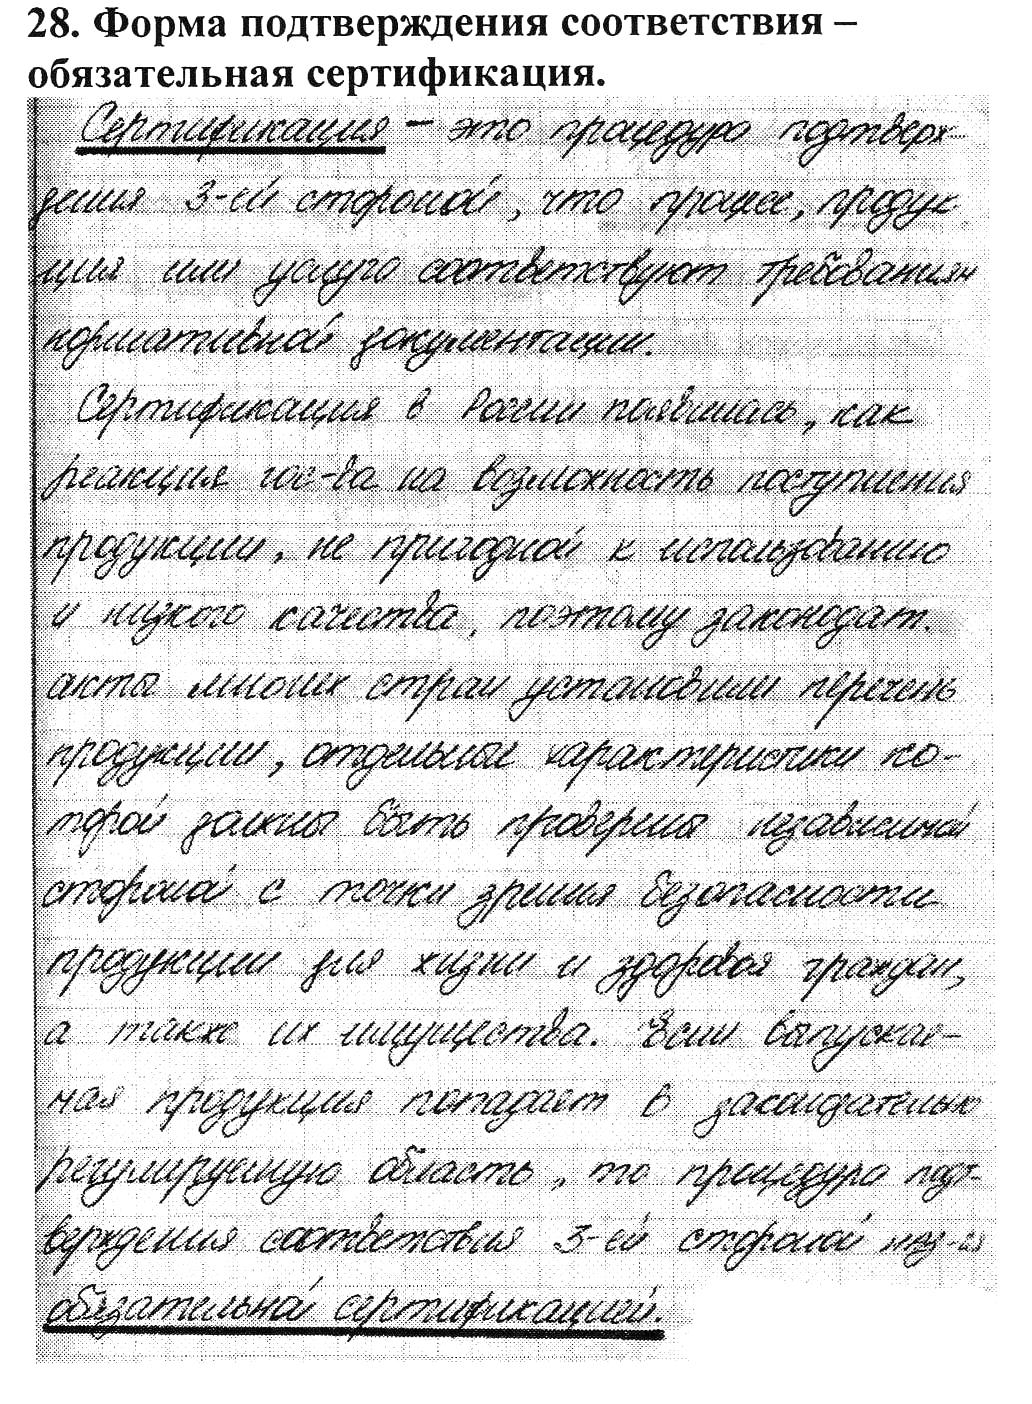 28. Форма подтверждения соответствия –
обязательная сертификация.
Сертификация – это процедура подтверж-
дения 3-ей стороной, что процесс, продук-
ция или услуга соответствуют требованиям
нормативной документации.
Сертификация в России появилась, как
реакция гос-ва на возможность поступления
продукции, не пригодной к использованию
и низкого качества, поэтому законодат.
акты многих стран установили перечень
продукции, отдельные характеристики ко-
торой должны быть проверены независимой
стороной с точки зрения безопасности
продукции для жизни и здоровья граждан,
а также их имущества. Если выпускае-
мая продукция попадает в законодательно
регулируемую область, то процедура подт-
верждения соответствия 3-ей стороной наз-ся
обязательной сертификацией.